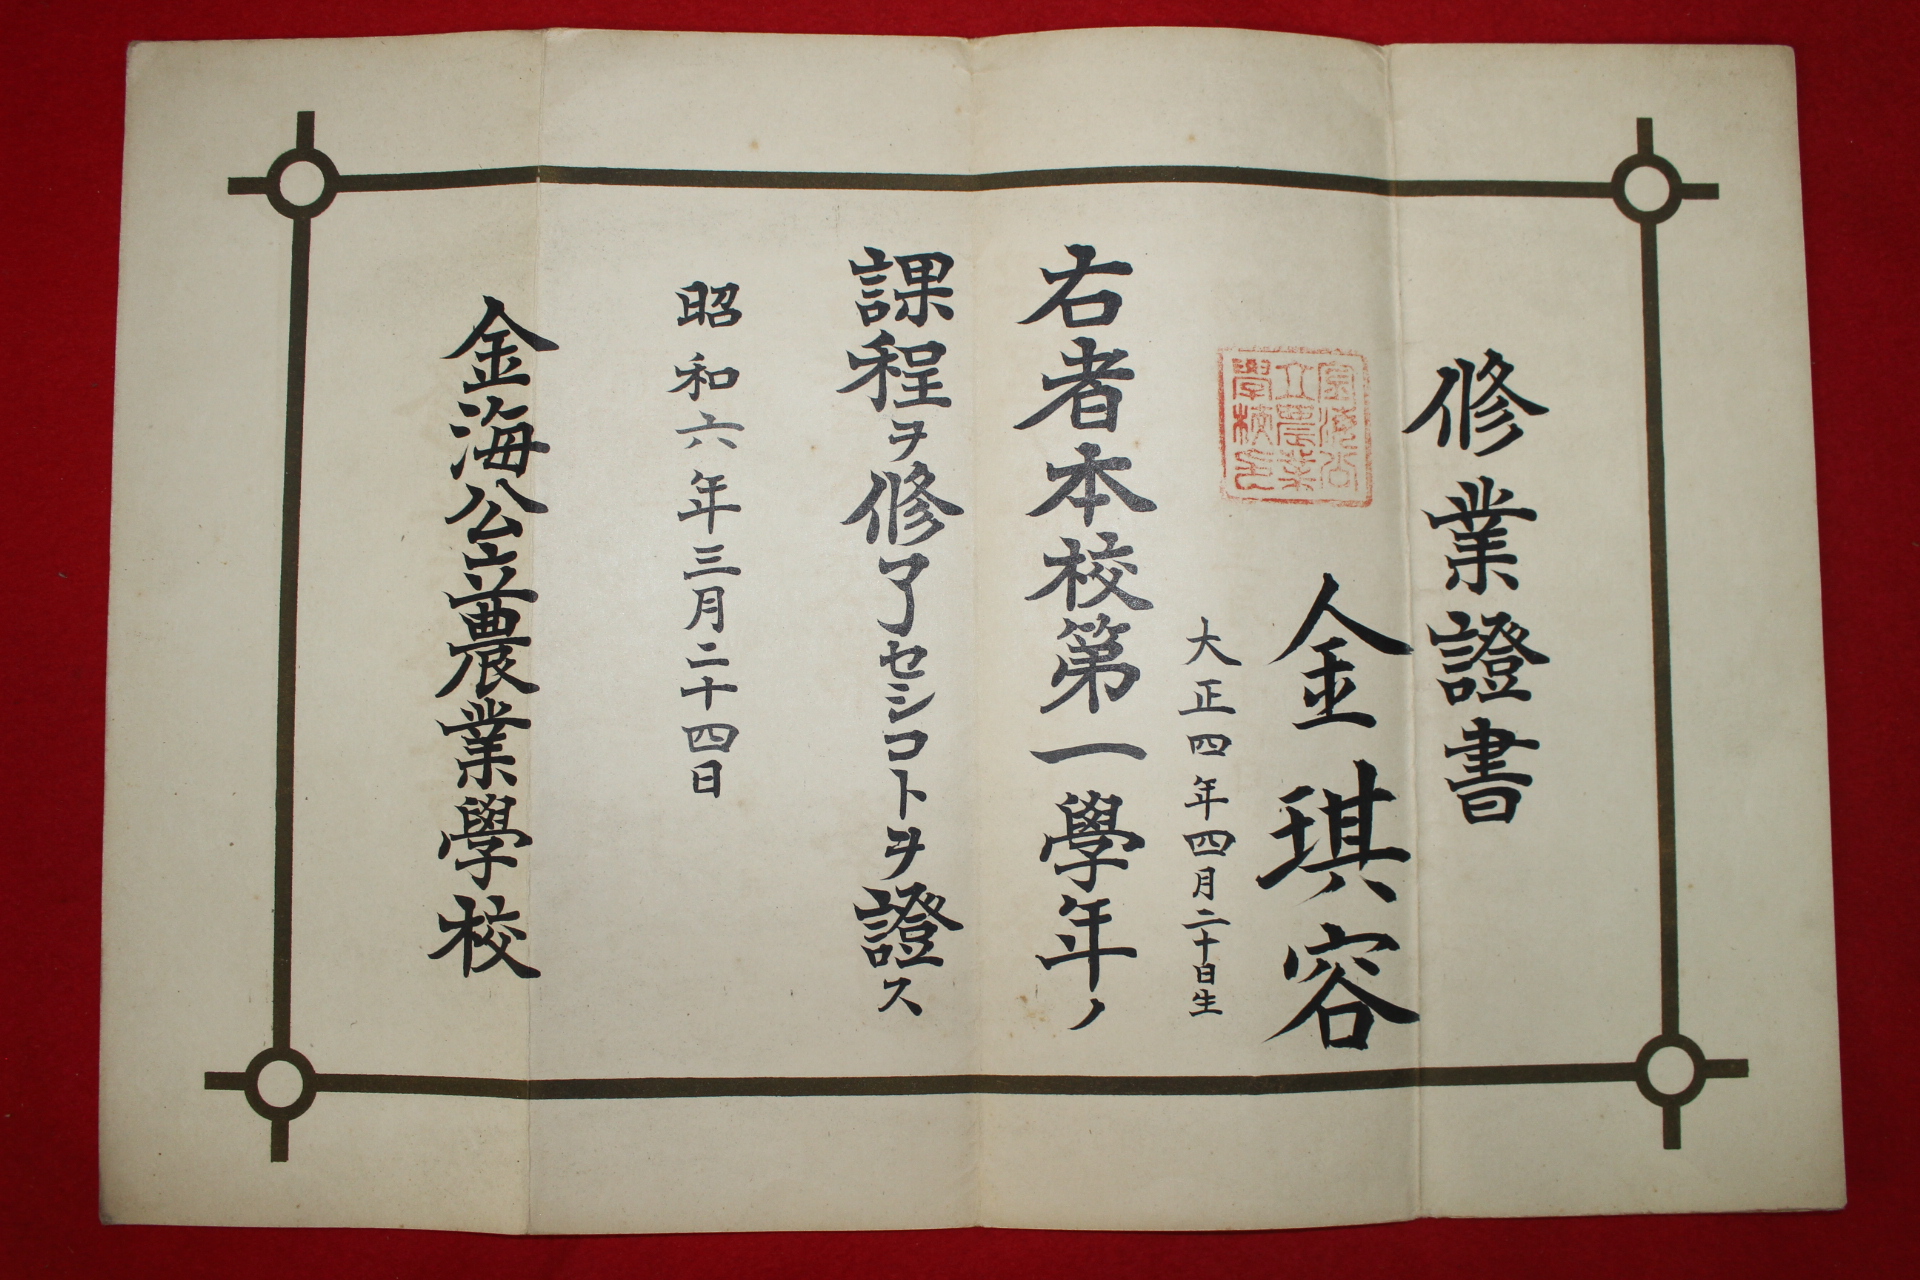 修業證書
金琪容
大正四年四月二十日生
右者本校第一學年ノ
課程ヲ修了セシコトヲ證ス
昭和六年三月二十四日
金海公立農業學校
金海公
立農業
學校之